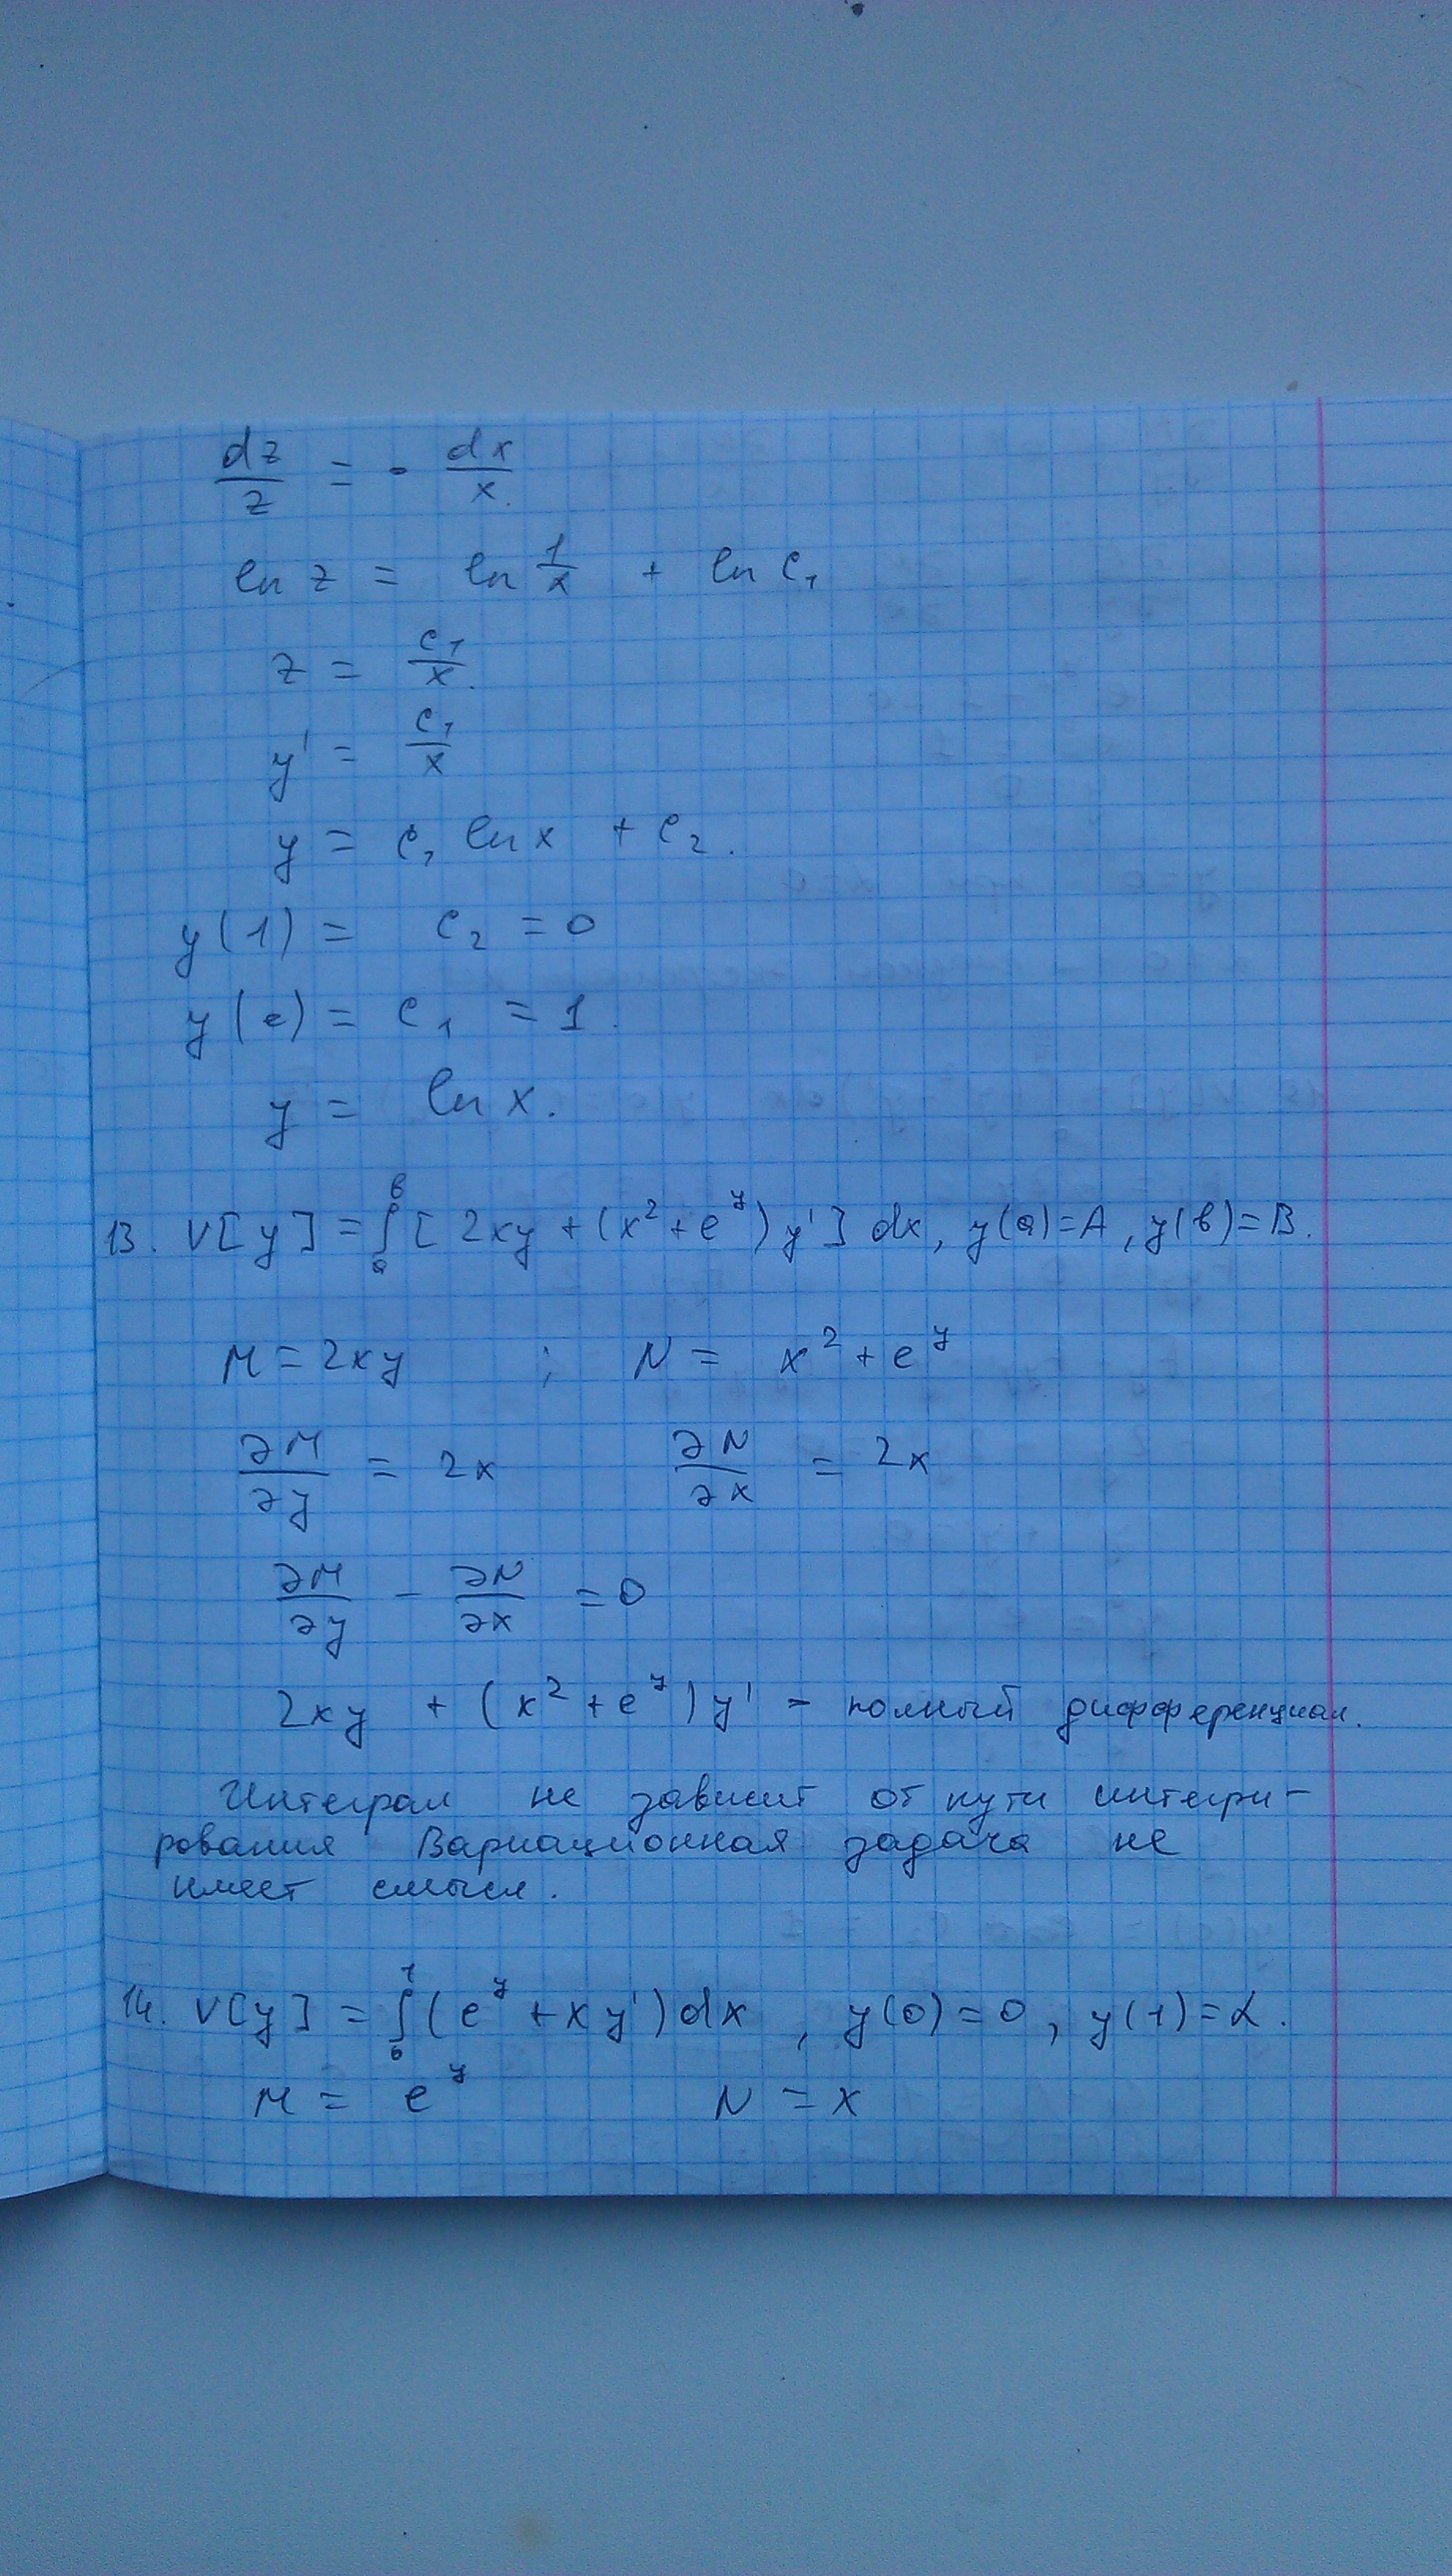 dz/z = - dx/x.
ln z = ln 1/x + ln c₁
z = c₁/x.
y' = c₁/x
y = c₁ ln x + c₂.
y(1) = c₂ = 0
y(e) = c₁ = 1.
y = ln x.
13. V[y] = ∫ₐᵇ [2xy + (x² + e^y) y'] dx, y(a)=A, y(b)=B.
M = 2xy ; N = x² + e^y
∂M/∂y = 2x ∂N/∂x = 2x
∂M/∂y - ∂N/∂x = 0
2xy + (x² + e^y) y' - полный дифференциал.
Интеграл не зависит от пути интегри-
рования Вариационная задача не
имеет смысл.
14. V[y] = ∫₀¹ (e^y + xy') dx, y(0)=0, y(1)=α.
M = e^y N = x